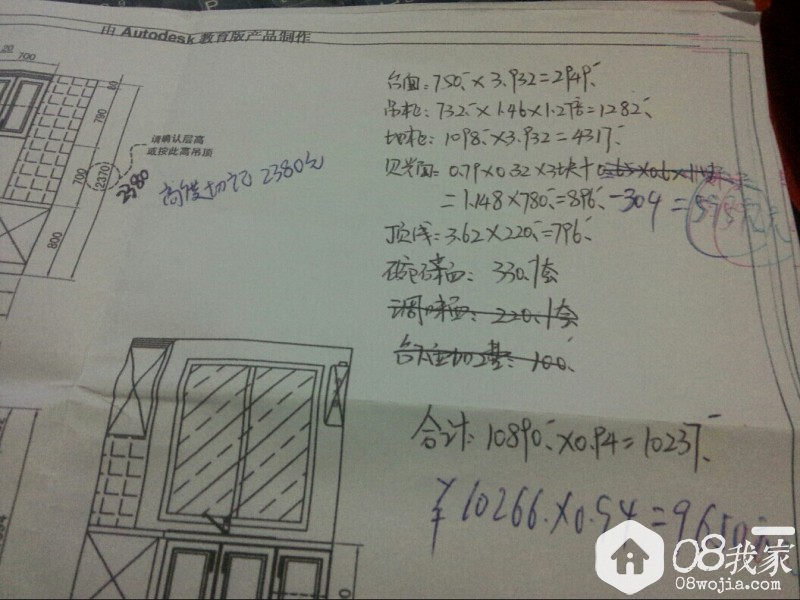 由 Autodesk 教育版产品制作
700
80
790
请确认层高
或按此高吊顶
700
(2370)
2380
高度切记 2380
800
台面: 750×3.932=2949
吊柜: 732×1.46×1.2倍=1282
地柜: 1098×3.932=4317
见光面: 0.79×0.32×3块+
=1.148×780=896 -304 =
顶线: 3.62×220=796
碗碟篮: 330/套
调味篮: 220/套
100
合计: 10890×0.94=10237
¥10266×0.94=9650元
08我家
08wojia.com